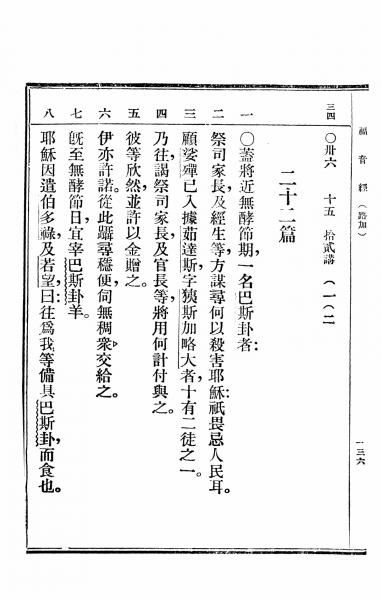 福音經（路加）
一三六
三四 〇卅六 十五 拾貳講（一（二
二十二篇
一 〇蓋將近無酵節期，一名巴斯卦者：
二 祭司家長，及經生等，方謀尋何以殺害耶穌：祇畏忌人民耳。
三 顧娑殫已入據茹達斯，字猠斯加略大者，十有二徒之一。
四 乃往謁祭司家長，及官長等，將用何計付與之。
五 彼等欣然，並許以金贈之。
六 伊亦許諾。從此躡尋穩便，旬無稠衆，交給之。
七 旣至無酵節日，宜宰巴斯卦羊。
八 耶穌因遣伯多祿，及若望，曰：往爲我等備具巴斯卦，而食也。